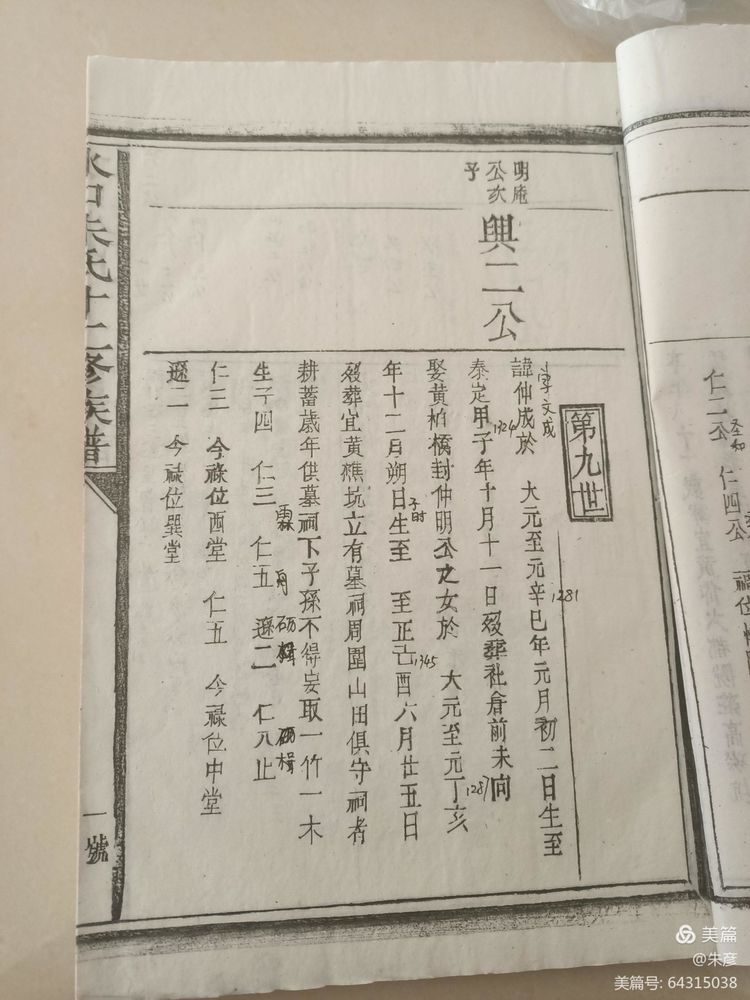 明庵
公次
子
興二公
第九世
字文成
諱仲成於 大元至元辛巳年元月初二日生至
1281
泰定甲子年十月十一日殁葬社倉前未向
1324
娶黄柏橋封仲明公之女於 大元至元丁亥
1287
年十二月朔日生至 至正己酉六月廿五日
子时
1345
殁葬宜黄樵坑立有墓祠周圍山田俱守祠者
耕蓄歲年供墓祠下子孫不得妄取一竹一木
霖
生子四 仁三 仁五 遜二 仁八止
仁三 今祿位西堂 仁五 今祿位中堂
遜二 今祿位巽堂
朱氏十二修族譜
一號
仁二公
仁四公
美篇
@朱彦
美篇号: 64315038